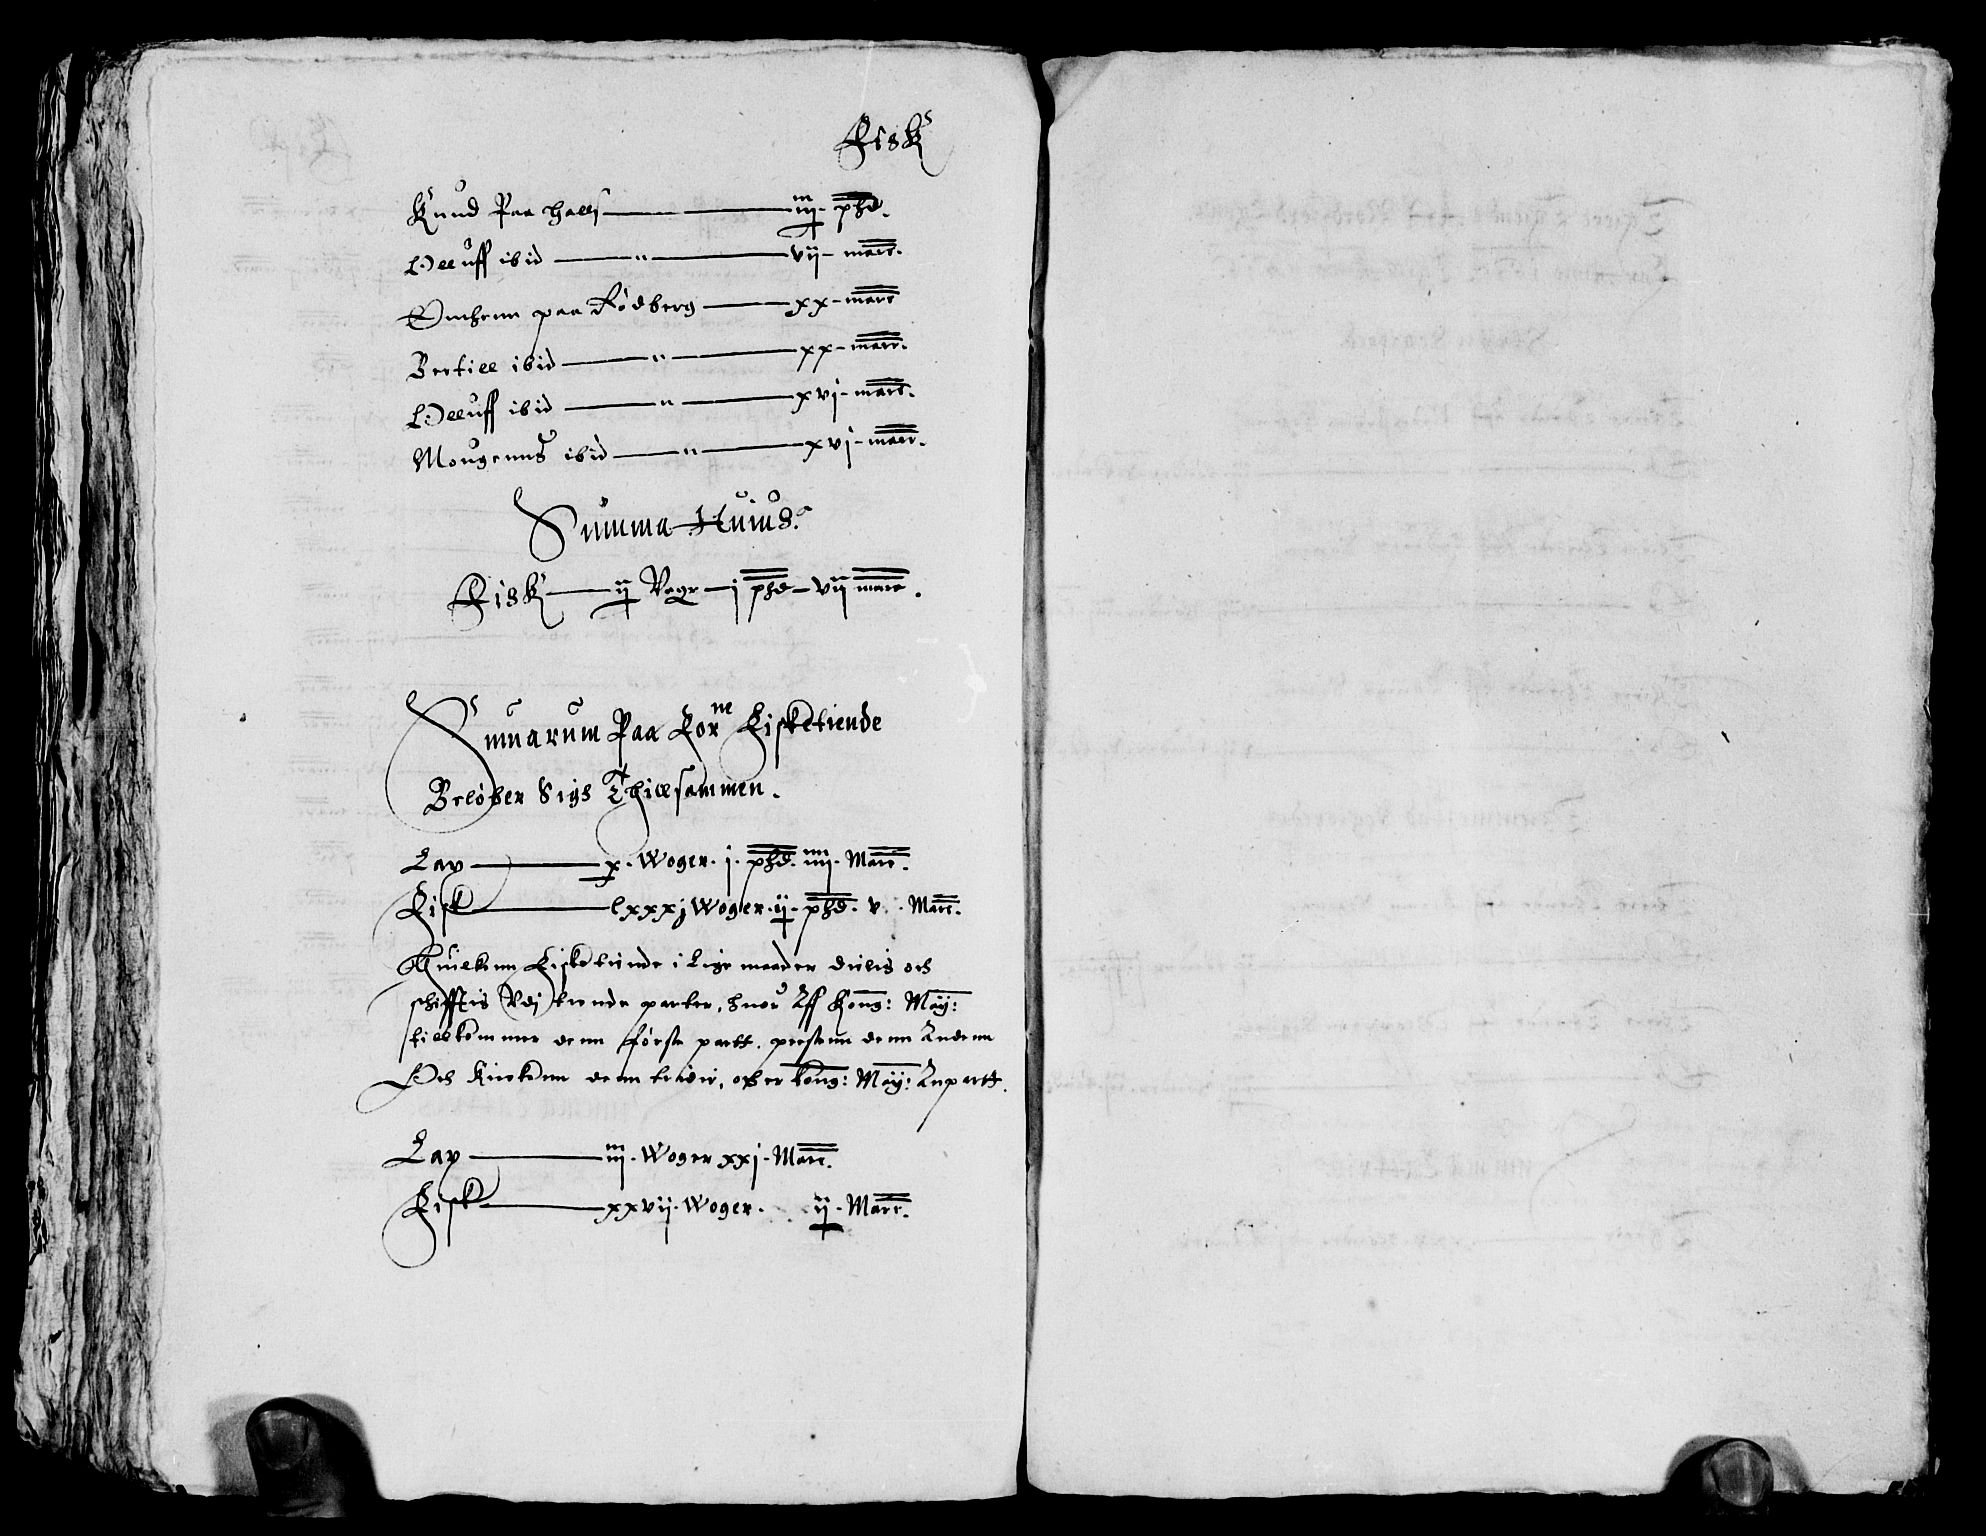 Fisk
Knud Paa hals — iij phd.
Oluff ibid — vij marc.
Omhenn paa Rødberg — xx marc
Bertill ibid — xx marc.
Oluff ibid — xvj marc.
Mougenns ibid — xvj marc.
Summa Huius.
Fisk — ij Voge — j phd — vij marc.
Sumarum Paa Forne Fisketiende
Beløber Sigs Thillsammen.
Lax — x. Woger. j. phd. iiij. Marc.
Fisk — lxxxj Woger. ij. phd. v. Marc.
Huilkenn Fisketiende i Lige maader deelis och
schifftis Vdj trende parter, huor Aff Kong: May:
tillkommer denn første partt. prestenn denn Andenn
Och Kirckenn denn tredie, och er kong: May: Anpartt.
Lax — iij. Woger xxj. Marc.
Fisk — xxvij. Woger. ij. Marc.